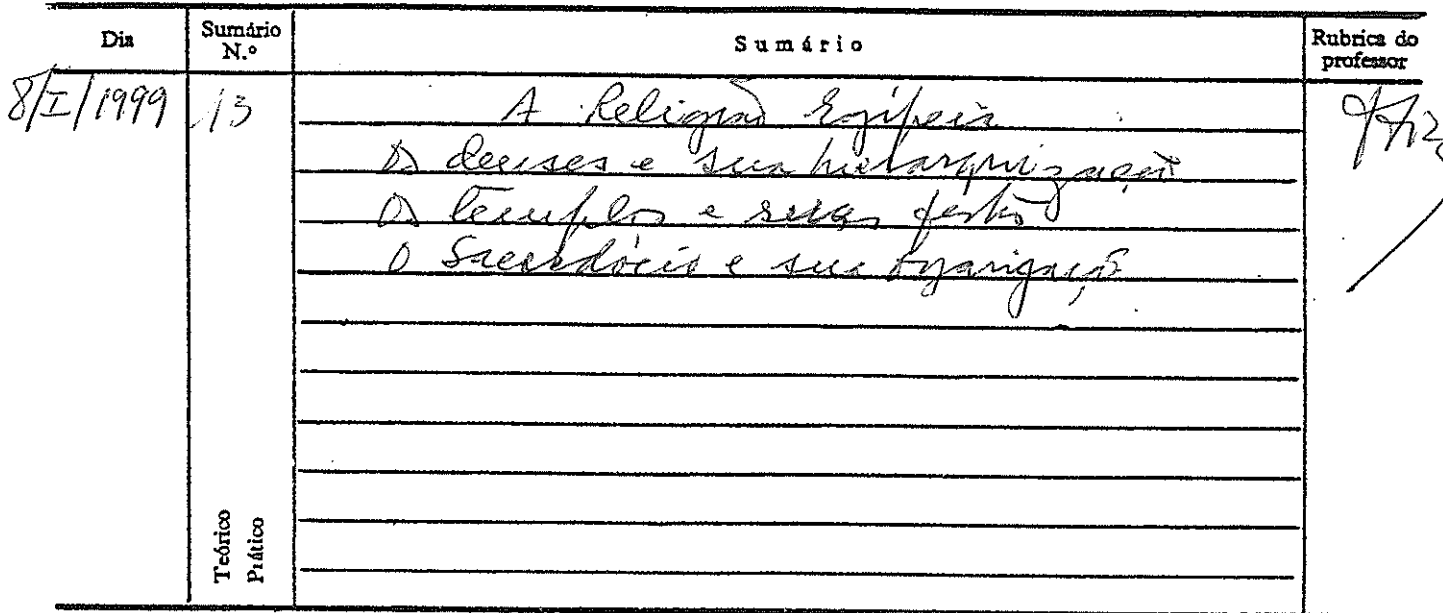 Dia Sumário N.º Sumário Rubrica do professor
8/I/1999 13 A Religião Egípcia
Os deuses e sua hierarquização
Os templos e suas festas
O Sacerdócio e sua organização
Teórico
Prático